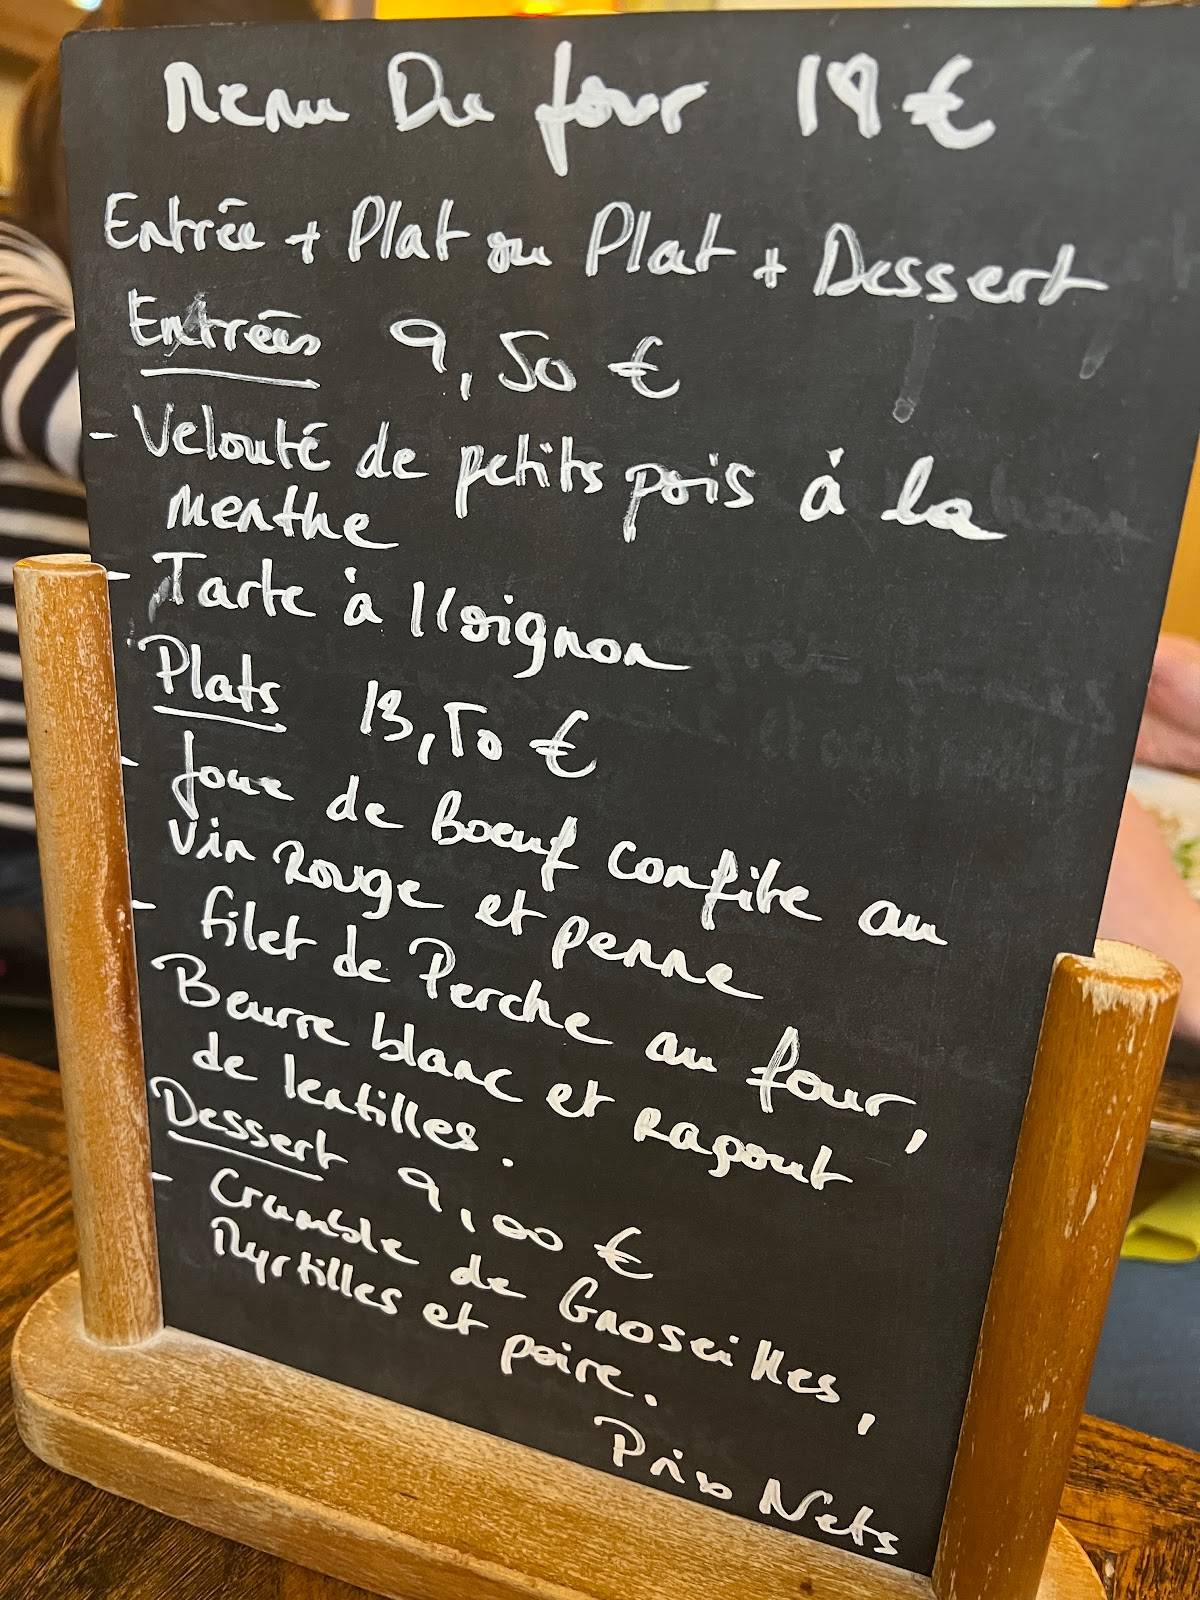 Menu Du jour 19 €
Entrée + Plat ou Plat + Dessert
Entrées 9,50 €
- Velouté de petits pois à la
menthe
- Tarte à l'oignon
Plats 13,50 €
- Joue de Boeuf confite au
Vin Rouge et penne
- filet de Perche au four,
Beurre blanc et Ragout
de lentilles.
Dessert 9,00 €
- Crumble de Groseilles,
Myrtilles et poire.
Prix Nets